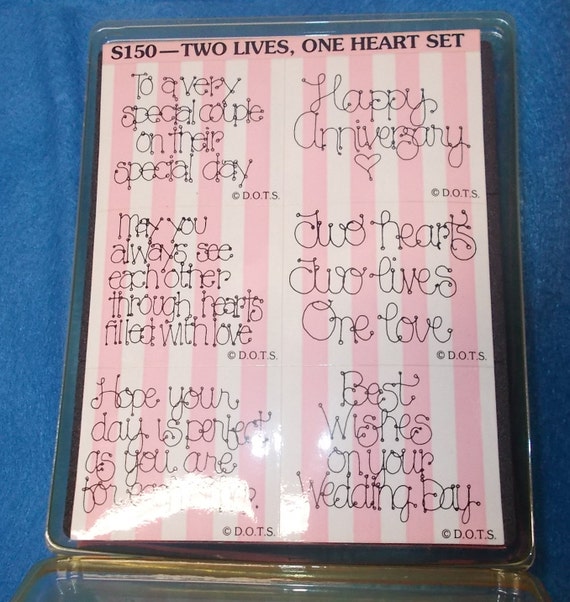 S150—TWO LIVES, ONE HEART SET
To a very
special couple
on their
special day
© D.O.T.S.
Happy
Anniversary
© D.O.T.S.
May you
always see
each other
through hearts
filled with love
© D.O.T.S.
Two hearts
Two lives
One love
© D.O.T.S.
Hope your
day is perfect
as you are
for each
© D.O.T.S.
Best
Wishes
on your
Wedding Day
© D.O.T.S.